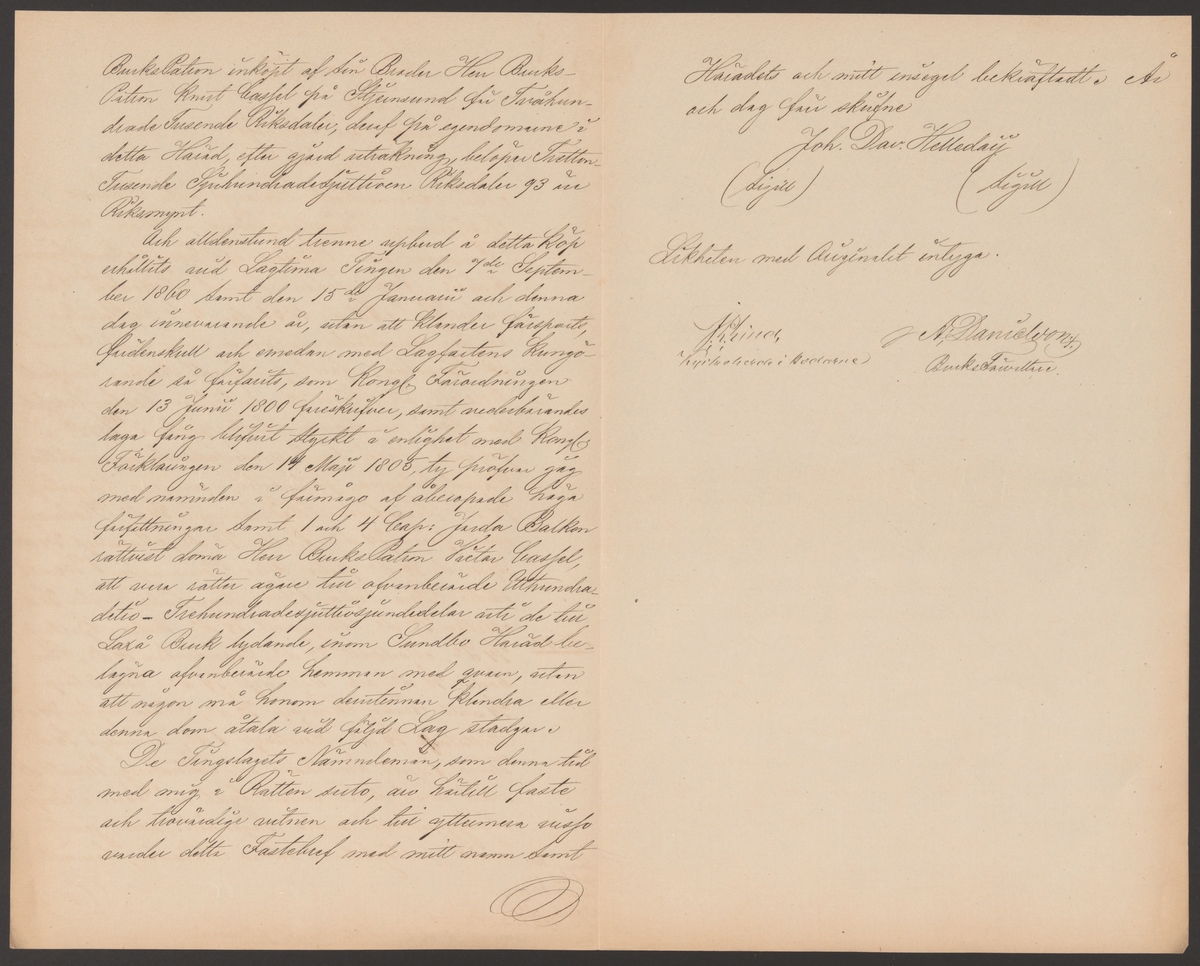 BruksPatron inköpt af sin Broder Herr Bruks-
Patron Knut Cassel på Stjernsund för Tvåhun-
drade Tusende Riksdaler, deraf på egendomarne i
detta Härad, efter gjord uträkning, belöper Tretton-
Tusende Sjuhundradesjuttiven Riksdaler 93 öre
Riksmynt.
Och alldenstund trenne uppbud å detta Köp
erhållits vid Lagtima Tingen den 7de Septem-
ber 1860 samt den 15de Januarii och denna
dag innevarande år, utan att klander försports,
fördenskull och emedan med Lagfartens kungö-
rande så förfarits, som Kongl. Förordningen
den 13 Junii 1800 föreskrifver, samt vederbörandes
laga fång blifvit styrkt i enlighet med Kongl.
Förklaringen den 14 Maji 1805, ty pröfvar jag
med nämnden i förmågo af åberopade höga
författningar samt 1 och 4 Cap: Jorda Balken
rättvist döma Herr BruksPatron Victor Cassel,
att vara rätter ägare till ofvanberörde Etthundra-
detio- Trehundradesjuttiosjundedelar uti de till
Laxå Bruk lydande, inom Sundbo Härad be-
lägna ofvanberörde hemman med qvarn, utan
att någon må honom derutinnan klandra eller
denna dom åtala vid följd Lag stadgar.
De Tingslagets Nämndemän, som denna tid
med mig i Rätten suto, äro härtill faste
och trovärdige vitnen och till yttermera visso
varder detta Fastebref med mitt namn samt
Häradets och mitt insegel bekräftadt. År
och dag förr skrifne
Joh. Dav. Helleday
(Sigill) (Sigill)
Likheten med Originalet intyga.
A. Danielson
BruksFörvaltare.